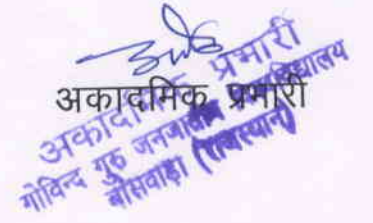 अकादमिक प्रभारी
अकादमिक प्रभारी
गोविन्द गुरु जनजातीय विश्वविद्यालय
बाँसवाड़ा (राजस्थान)